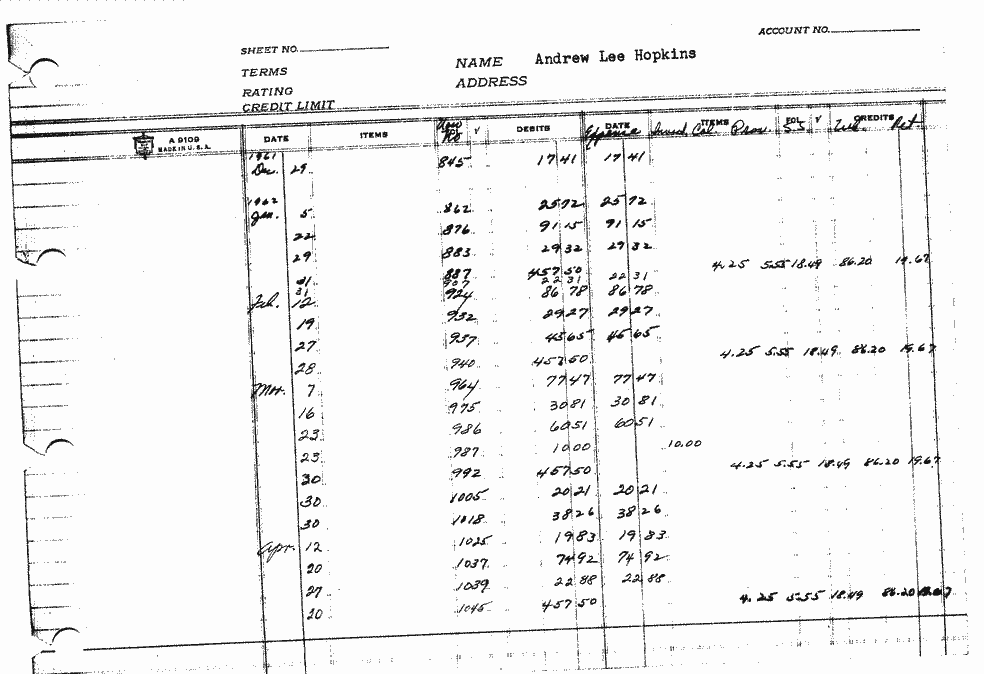 ACCOUNT NO.
SHEET NO.
NAME Andrew Lee Hopkins
TERMS
ADDRESS
RATING
CREDIT LIMIT
A 9109 MADE IN U.S.A. DATE ITEMS No DEBITS DATE Expense ITEMS Prov. FOL. S.S. CREDITS Ret.
1961
Dec. 29 845 17 41 17 41
1962
Jan. 5 862 25 72 25 72
22 876 91 15 91 15
29 883 29 32 29 32
31 887 457 50 4.25 5.55 18.49 86.20 19.67
31 907 22 31 22 31
Feb. 12 924 86 78 86 78
19 932 29 27 29 27
27 937 45 65 45 65
28 940 457 50 4.25 5.55 18.49 86.20 19.67
Mar. 7 964 77 47 77 47
16 975 30 81 30 81
23 986 60 51 60 51
23 987 10 00 10.00
30 992 457 50 4.25 5.55 18.49 86.20 19.67
30 1005 20 21 20 21
30 1018 38 26 38 26
Apr. 12 1025 19 83 19 83
20 1037 74 92 74 92
27 1039 22 88 22 88
30 1045 457 50 4.25 5.55 18.49 86.20 19.67